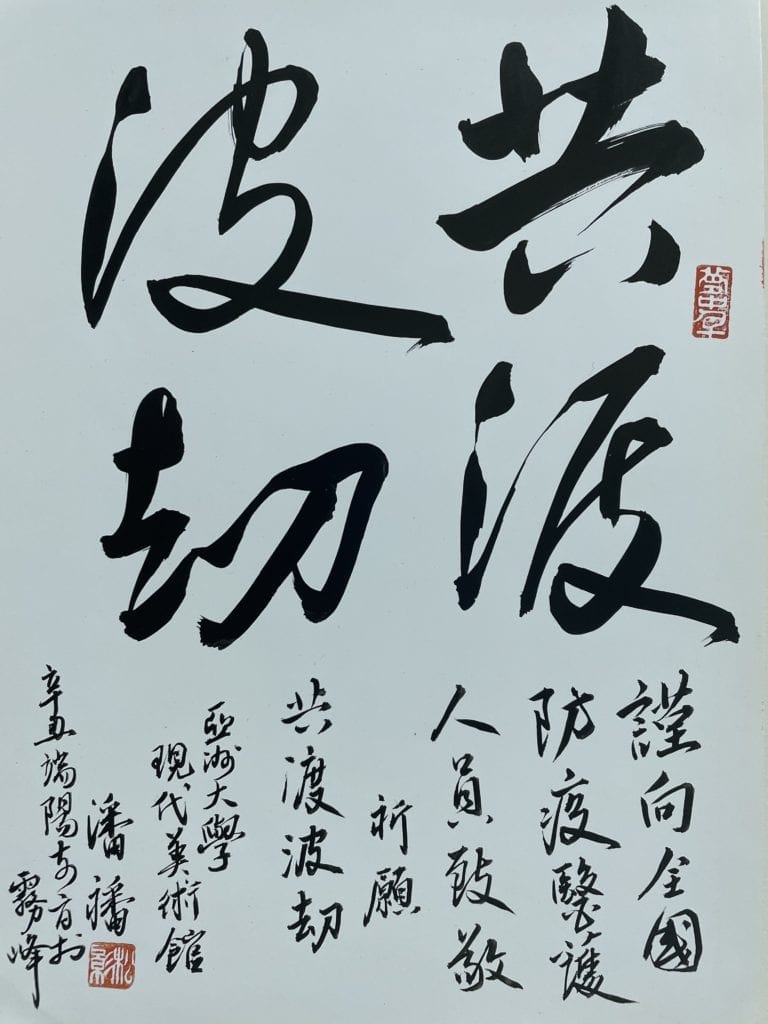 共渡
波劫
謹向全國
防疫醫護
人員致敬
祈願
共渡波劫
亞洲大學
現代美術館
潘襎
辛丑端陽
霧峰